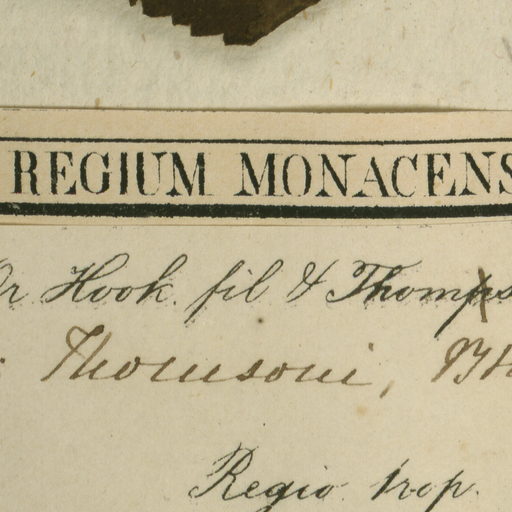 REGIUM MONACENS
Dr Hook. fil & Thomps
Thomsoni,
Regio trop.